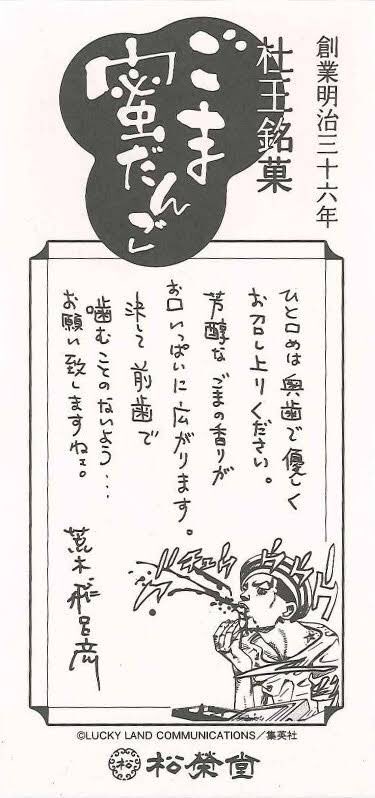 創業明治三十六年
杜王銘菓
ごま
蜜だんご
ひと口めは奥歯で優しく
お召し上りください。
芳醇なごまの香りが
お口いっぱいに広がります。
決して前歯で
噛むことのないよう…
お願い致しますねェ。
荒木飛呂彦
©LUCKY LAND COMMUNICATIONS/集英社
松
松榮堂